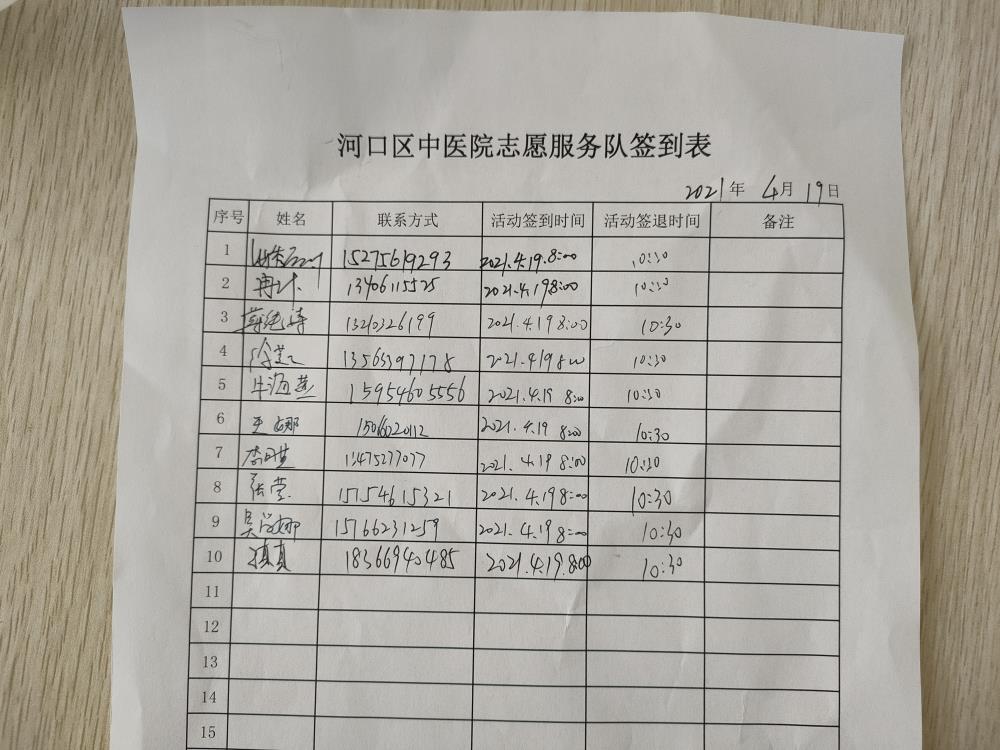 河口区中医院志愿服务队签到表
2021年 4月 19日
序号 姓名 联系方式 活动签到时间 活动签退时间 备注
1 15275619293 2021.4.19.8:00 10:30
2 13406115525 2021.4.19 8:00 10:30
3 13210326199 2021.4.19 8:00 10:30
4 13563397178 2021.4.19 8:00 10:30
5 牛海燕 15954605556 2021.4.19 8:00 10:30
6 王娜 2021.4.19 8:00 10:30
7 13475277077 2021.4.19 8:00 10:30
8 张莹 15154615321 2021.4.19 8:00 10:30
9 15766231259 2021.4.19 8:00 10:30
10 18366940485 2021.4.19.8:00 10:30
11
12
13
14
15